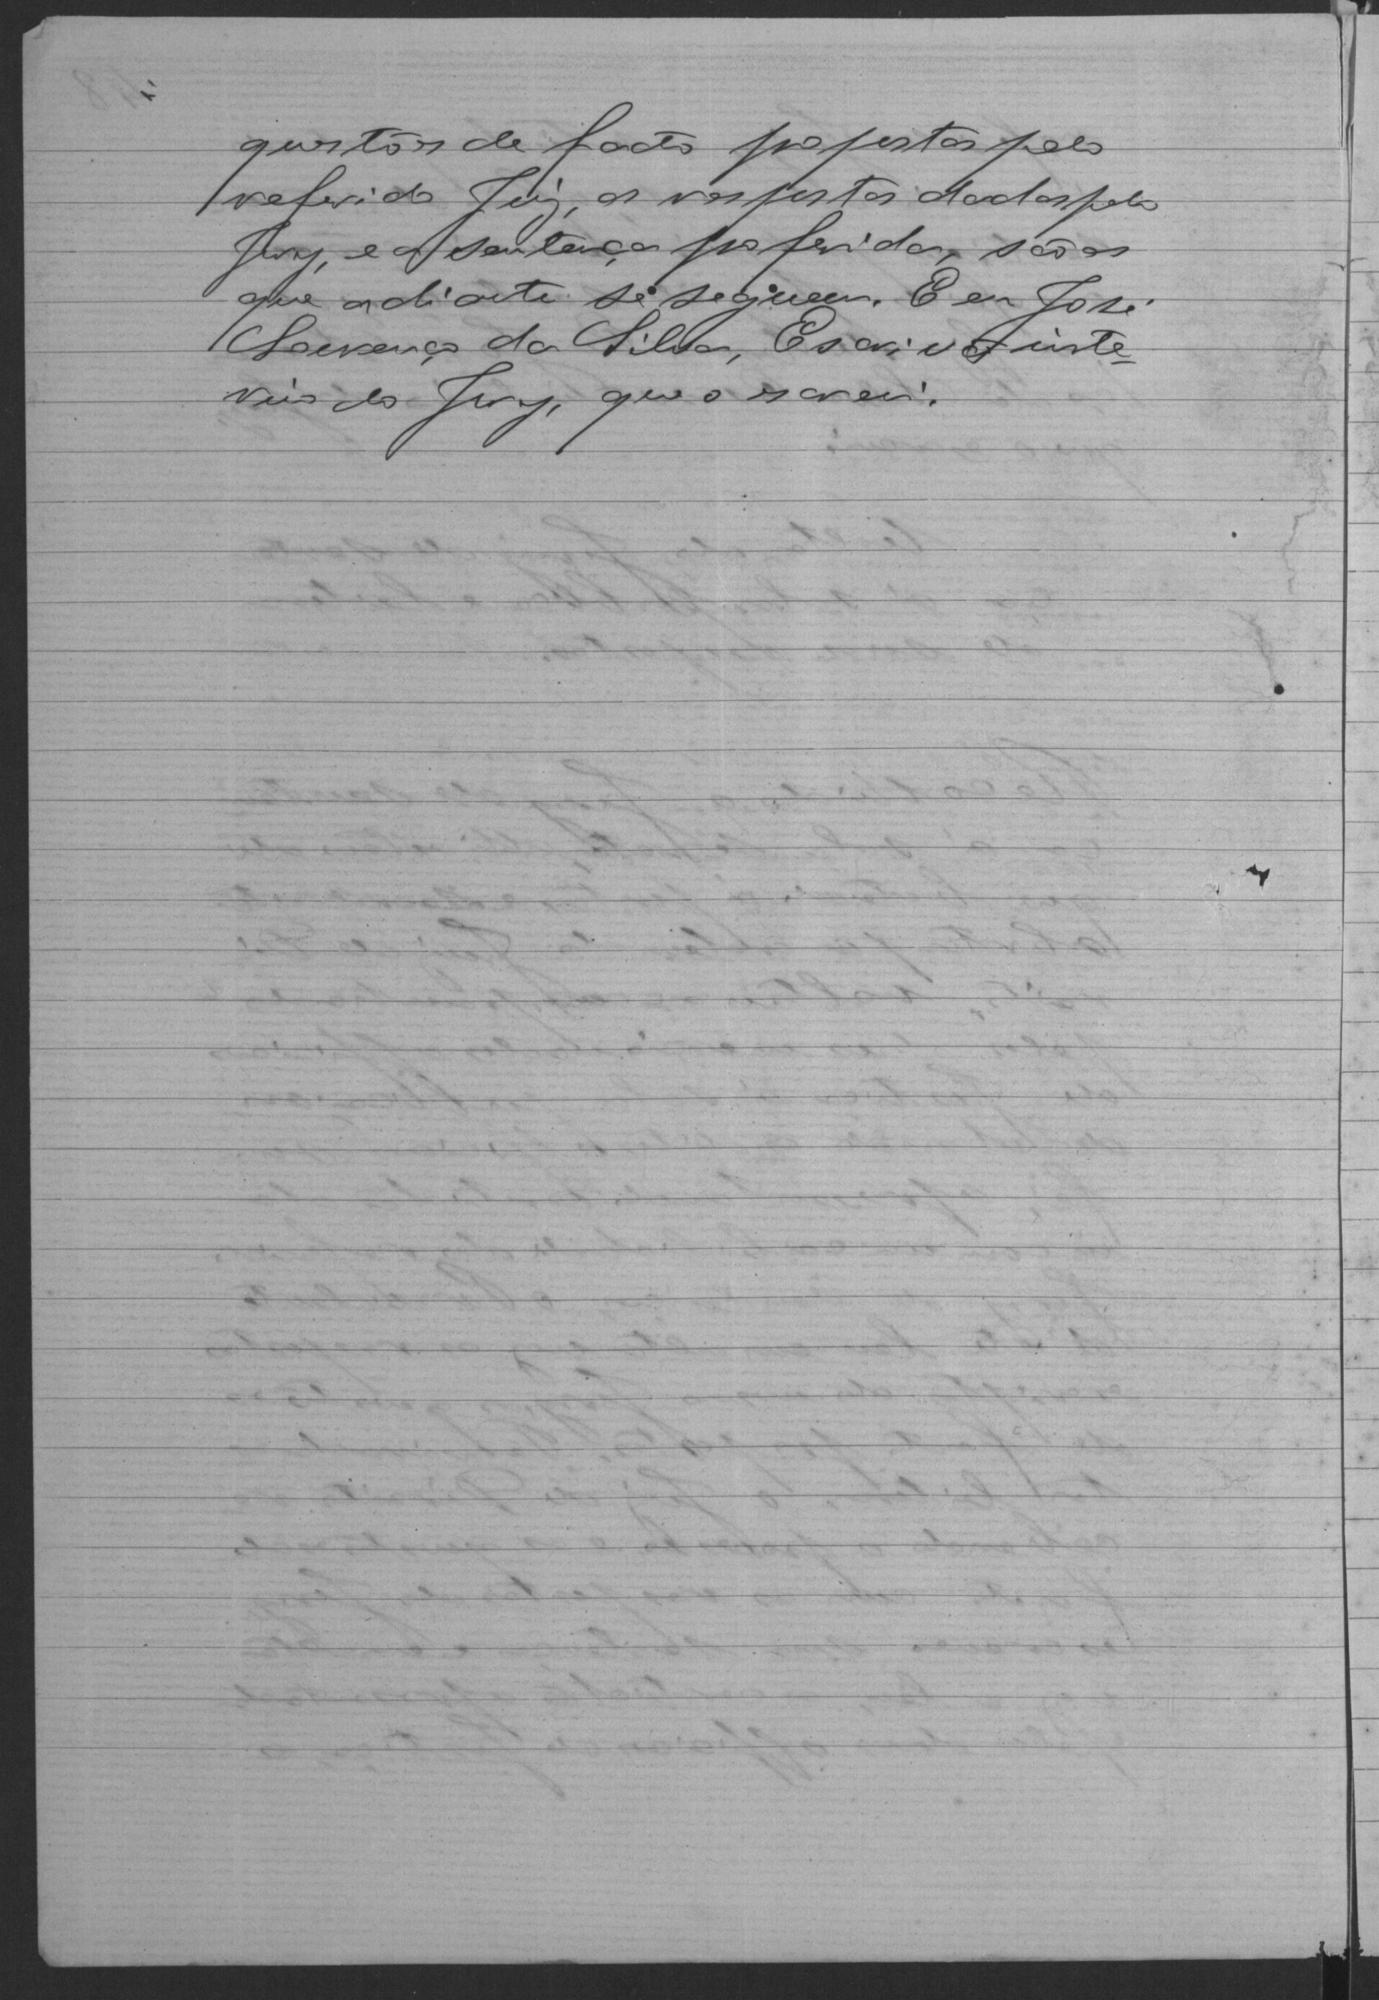 questões de facto propostas pelo
referido Juiz, as respostas dadas pelo
Jury, e a sentença proferida, são as
que adiante se seguem. E eu José
Lourenço da Silva, Escrivão inte-
rino do Jury, que o escrevi.